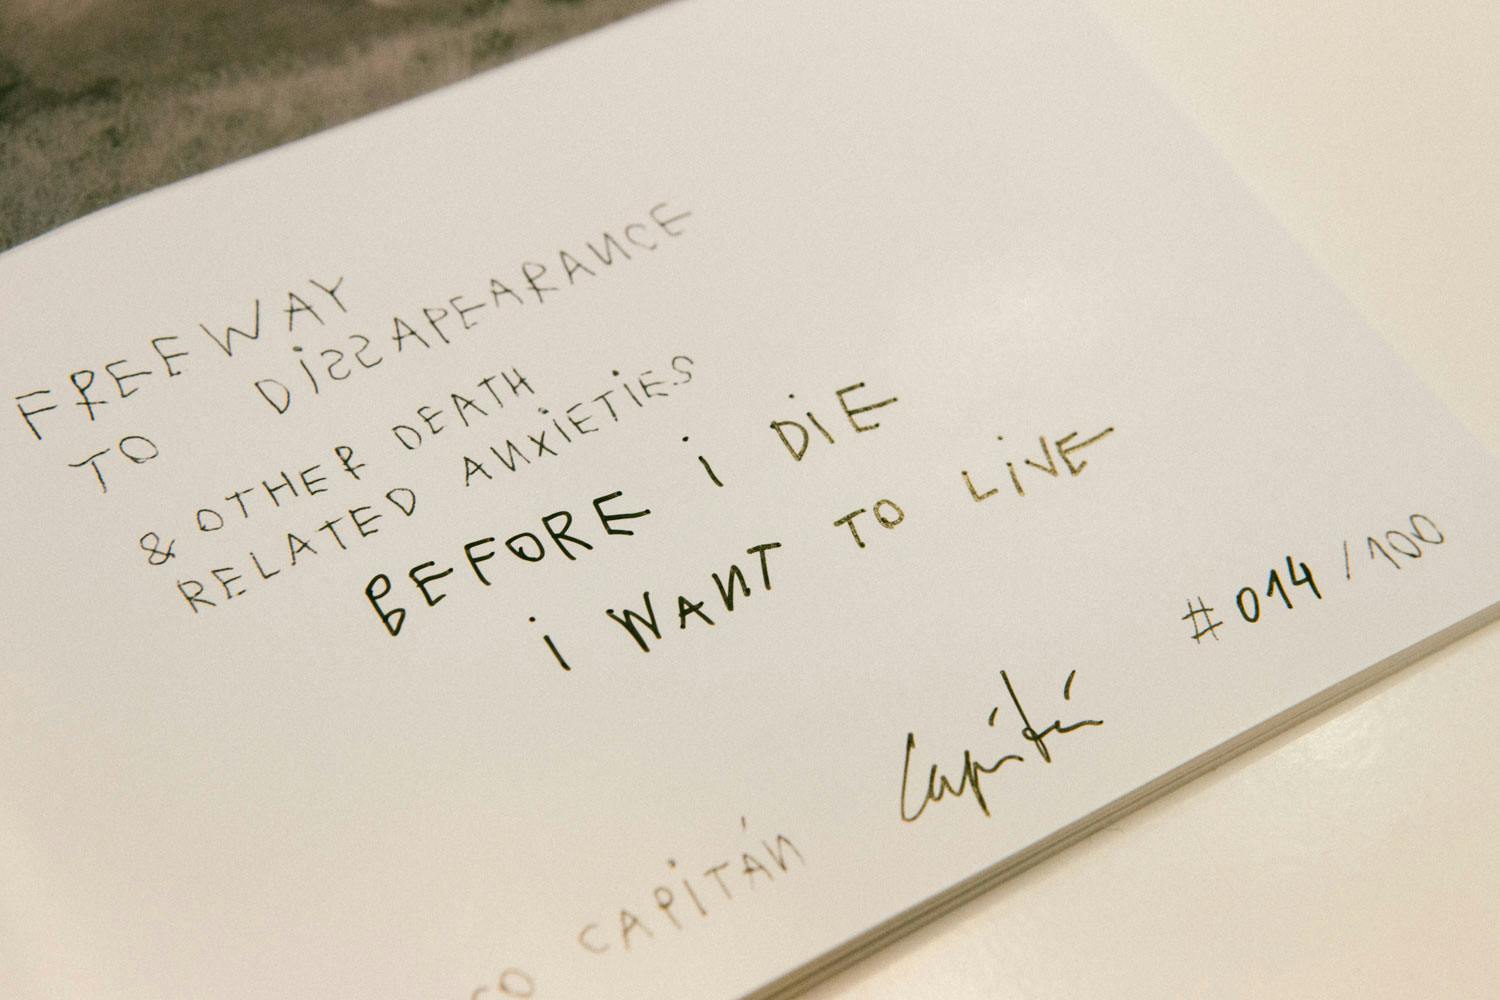 FREEWAY
TO DISSAPEARANCE
& OTHER DEATH
RELATED ANXIETIES
BEFORE i DiE
i WANT TO LiVE
#014/100
Capitán
CO CAPiTÁN